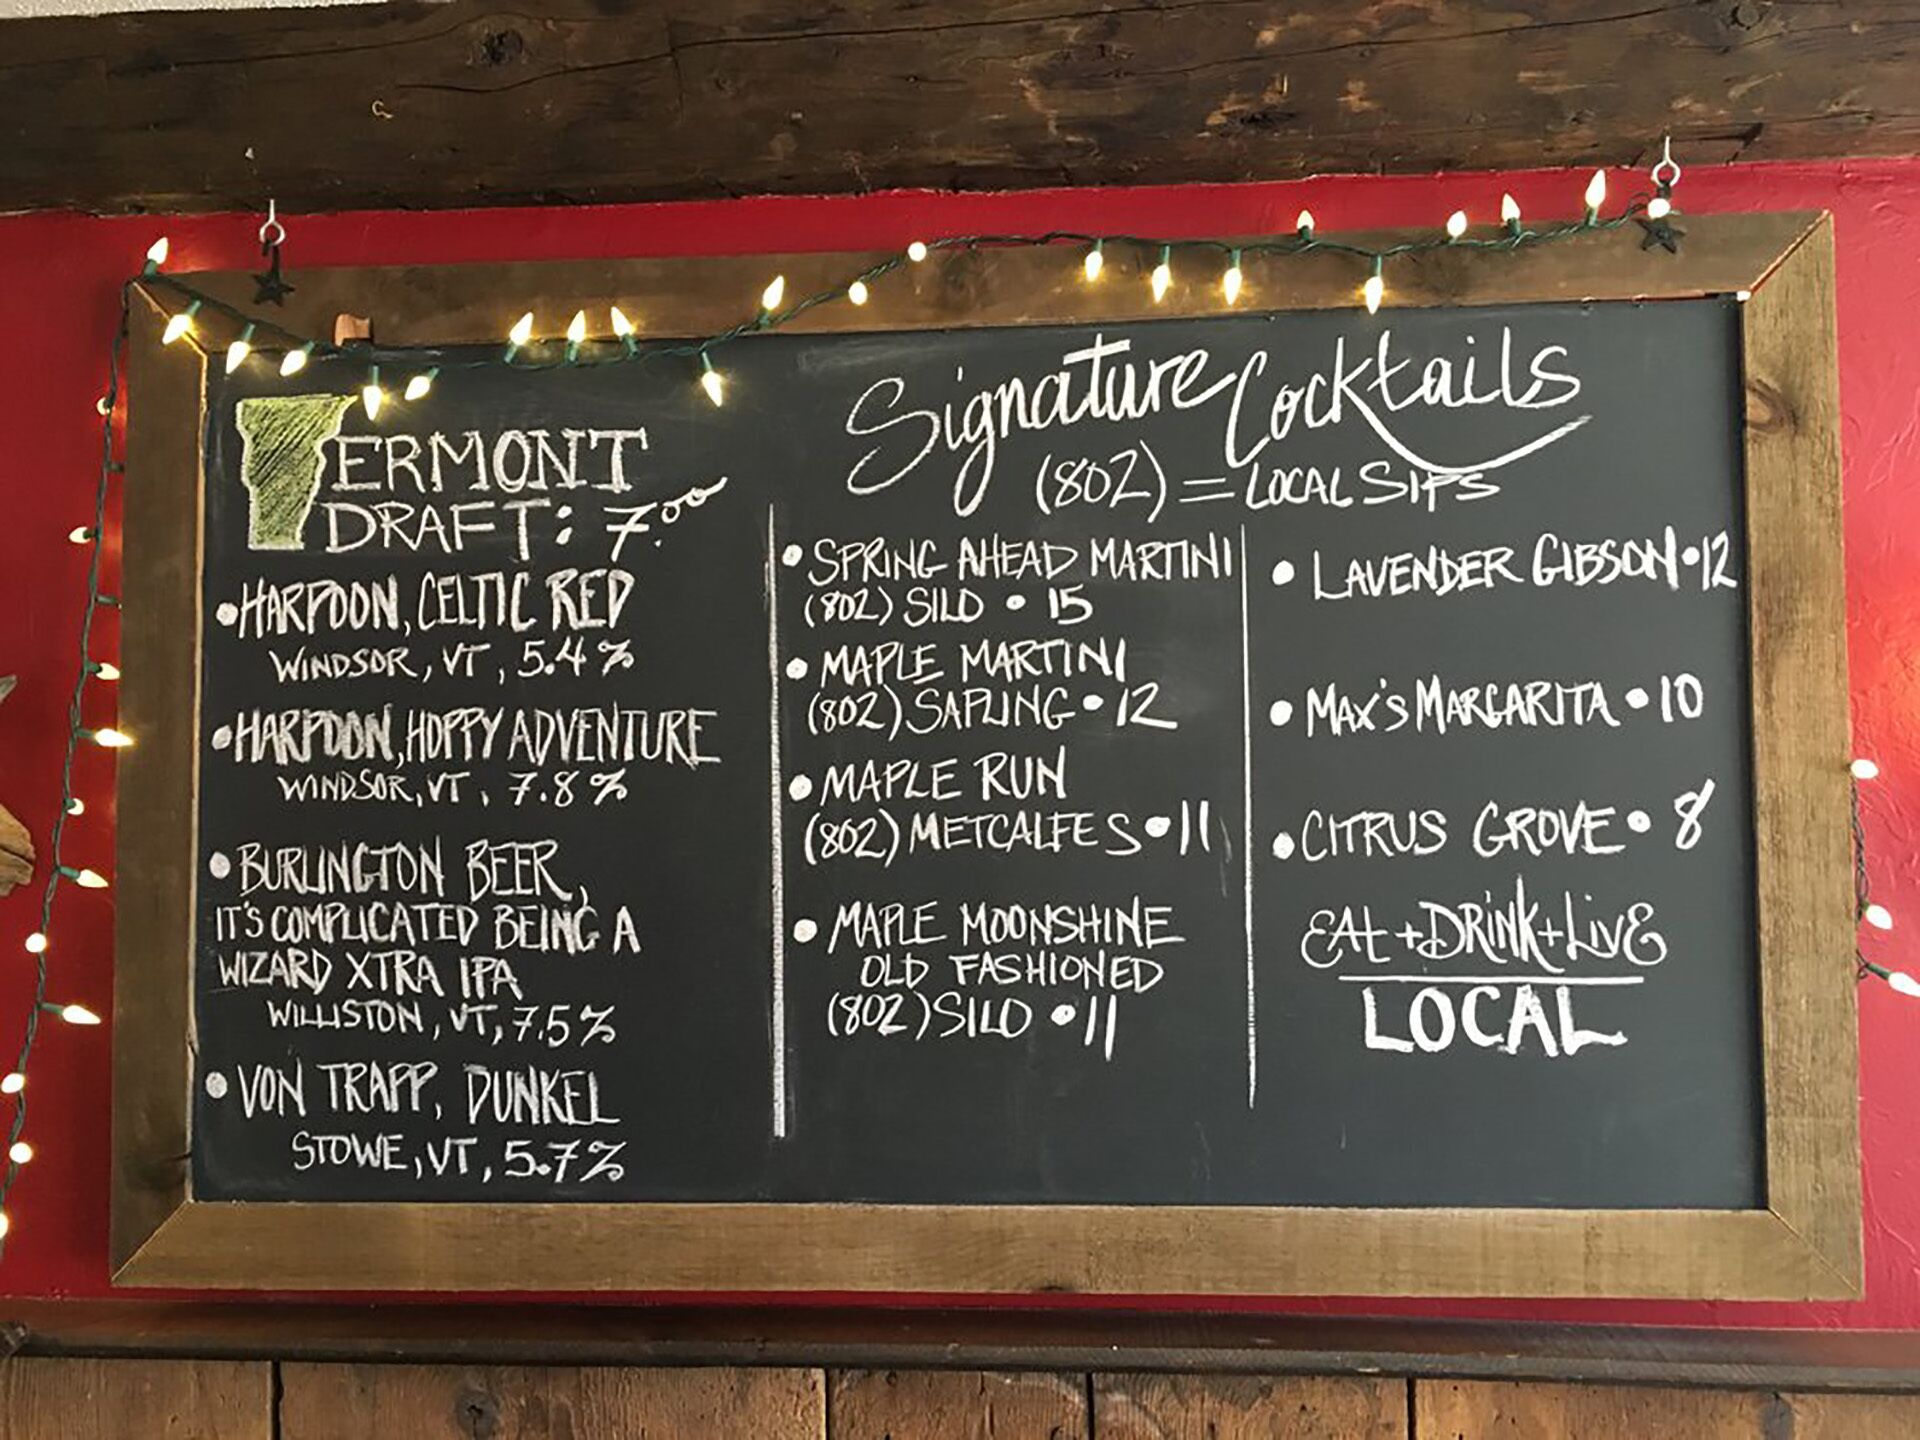 VERMONT
DRAFT: 7.00
• HARPOON, CELTIC RED
WINDSOR, VT, 5.4%
• HARPOON, HOPPY ADVENTURE
WINDSOR, VT, 7.8%
• BURLINGTON BEER,
IT'S COMPLICATED BEING A
WIZARD XTRA IPA
WILLISTON, VT, 7.5%
• VON TRAPP, DUNKEL
STOWE, VT, 5.7%
Signature Cocktails
(802) = LOCAL SIPS
• SPRING AHEAD MARTINI
(802) SILO • 15
• MAPLE MARTINI
(802) SAPLING • 12
• MAPLE RUN
(802) METCALFES • 11
• MAPLE MOONSHINE
OLD FASHIONED
(802) SILO • 11
• LAVENDER GIBSON • 12
• MAX'S MARGARITA • 10
• CITRUS GROVE • 8
EAt + DRiNK + LivE
LOCAL